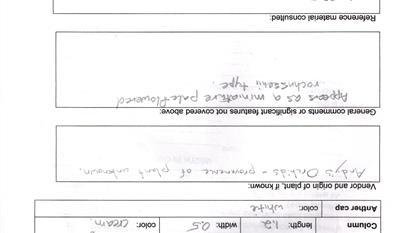 Column length: 1.2 width: 0.5 color: cream
Anther cap color: white
Vendor and origin of plant, if known:
Andy's Orchids - provenance of plant unknown.
General comments or significant features not covered above:
Appears as a miniature pale flowered
rochussenii type.
Reference material consulted: